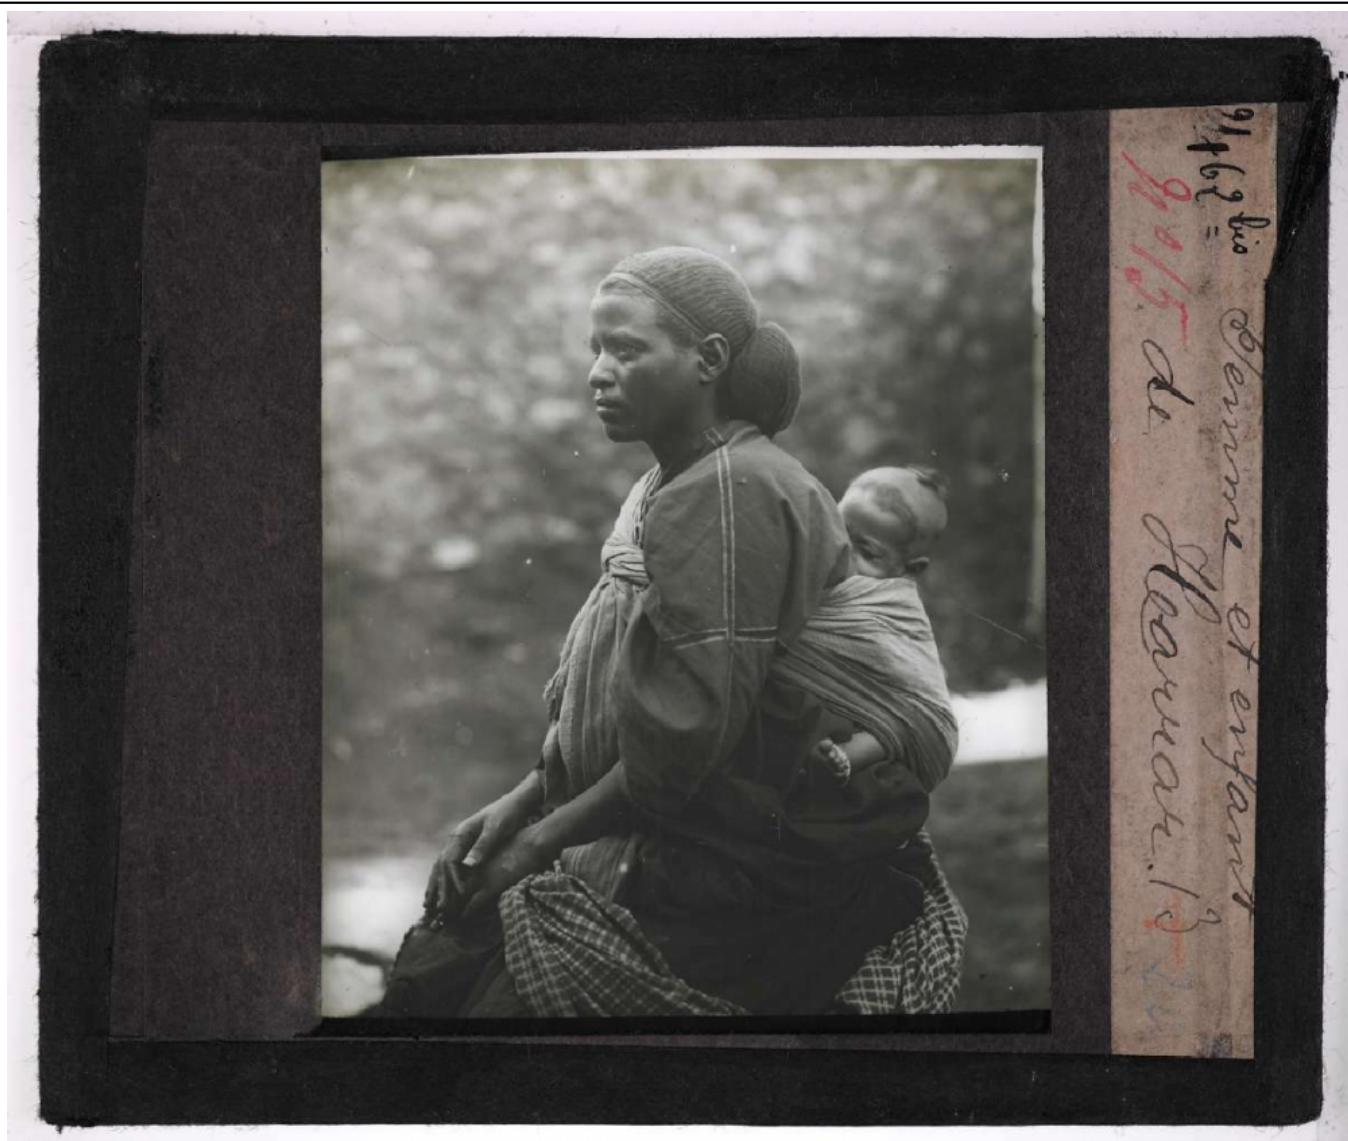 9162 bis Femme et enfant
No 15 de Harrar. (?)